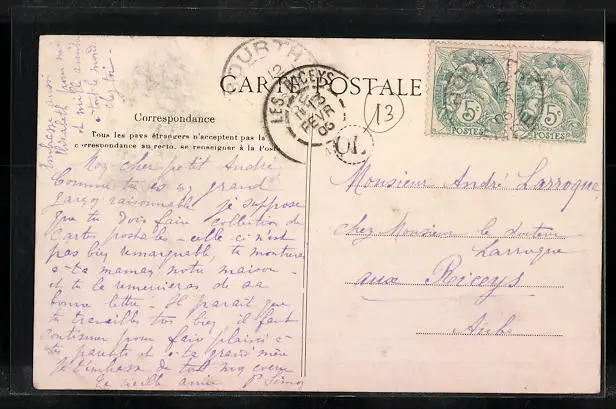 Embrasse aussi
Elisabeth pour moi
et mille amitiés
à tout le monde
chez toi
CARTE POSTALE
Correspondance
Tous les pays étrangers n'acceptent pas la
correspondance au recto, se renseigner à la Poste
Mon cher petit André
Comme tu es un grand
garçon raisonnable je suppose
que tu dois faire collection de
cartes postales - celle-ci n'est
pas bien remarquable, tu montreras
à ta maman notre maison -
et tu la remercieras de sa
bonne lettre - Il paraît que
tu travailles très bien, il faut
continuer pour faire plaisir à
tes parents et à ta grand'mère
je t'embrasse de tout mon coeur
Ta vieille amie P. Simon
LES RICEYS
13
FEVR
05
13
OL
5c
POSTES
5c
POSTES
Monsieur André Larroque
chez Monsieur le docteur
Larroque
aux Riceys
Aube